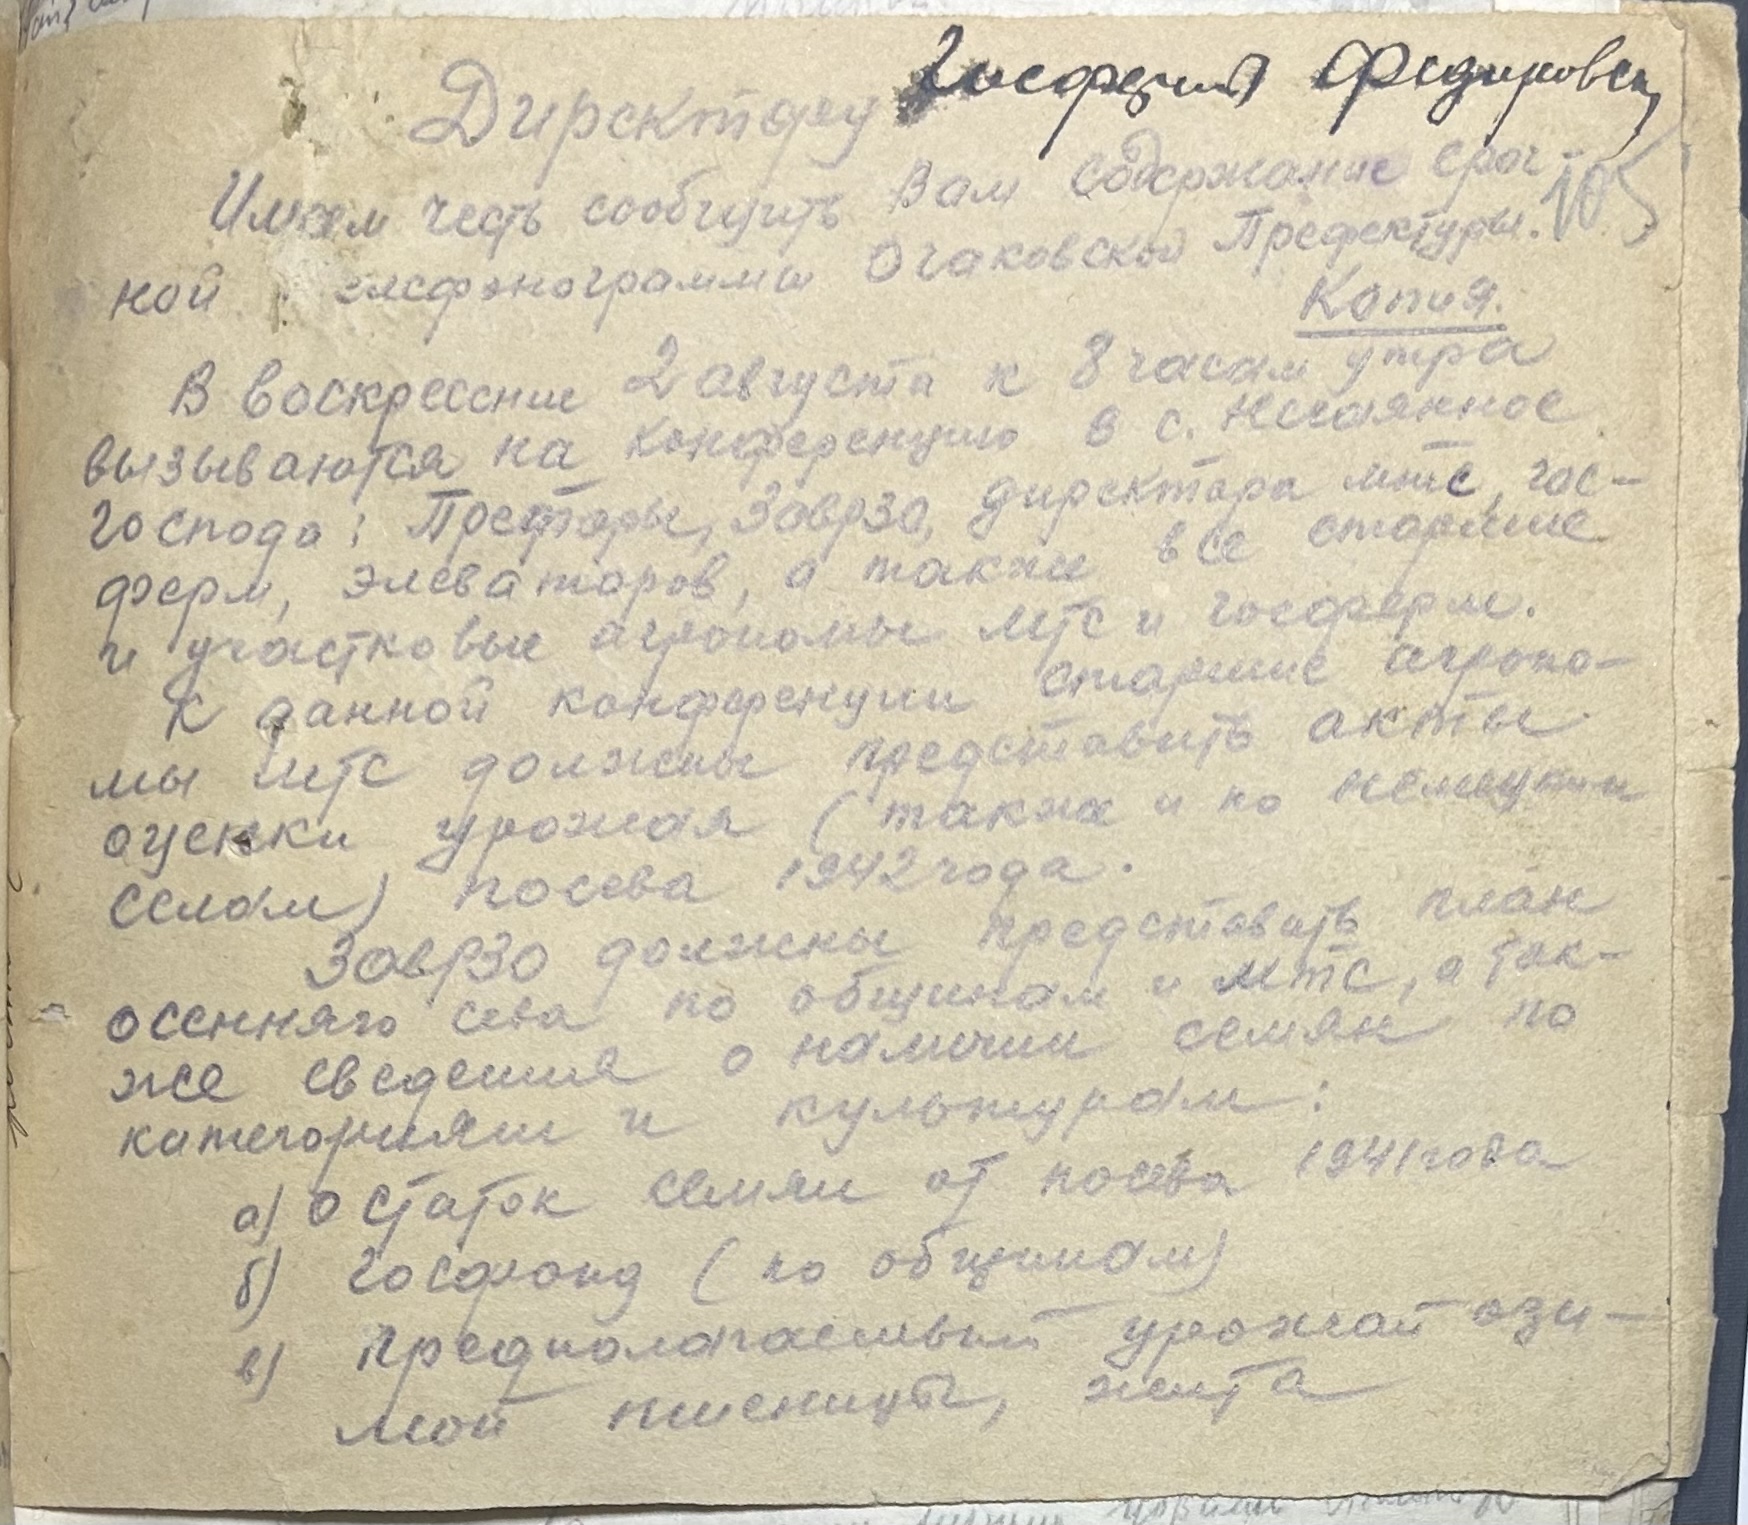 Директору Госфермы Федоровск
Имеем честь сообщить Вам содержание сроч-
ной телефонограммы Очаковской Префектуры.
105
Копия.
В воскресение 2 августа к 8 часам утра
вызываются на конференцию в с. Нечаянное
господа: Преторы, ЗавРЗО, директора МТС, гос-
ферм, элеваторов, а также все старшие
и участковые агрономы МТС и госферм.
К данной конференции старшие агроно-
мы МТС должны представить акты
оценки урожая (также и по немецким
селам) посева 1942 года.
ЗавРЗО должны представить план
осенняго сева по общинам и МТС, а так-
же сведения о наличии семян по
категориям и культурам:
а) остаток семян от посева 1941 года
б) Госфонд (по общинам)
в) предполагаемый урожай ози-
мой пшеницы, жита